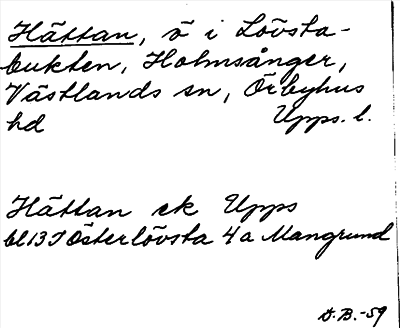 Hättan, ö i Lövsta-
bukten, Holmsånger,
Västlands sn, Örbyhus
hd Upps. l.
Hättan ek Upps
bl 13 J Österlövsta 4a Mangrund
D.B.-59